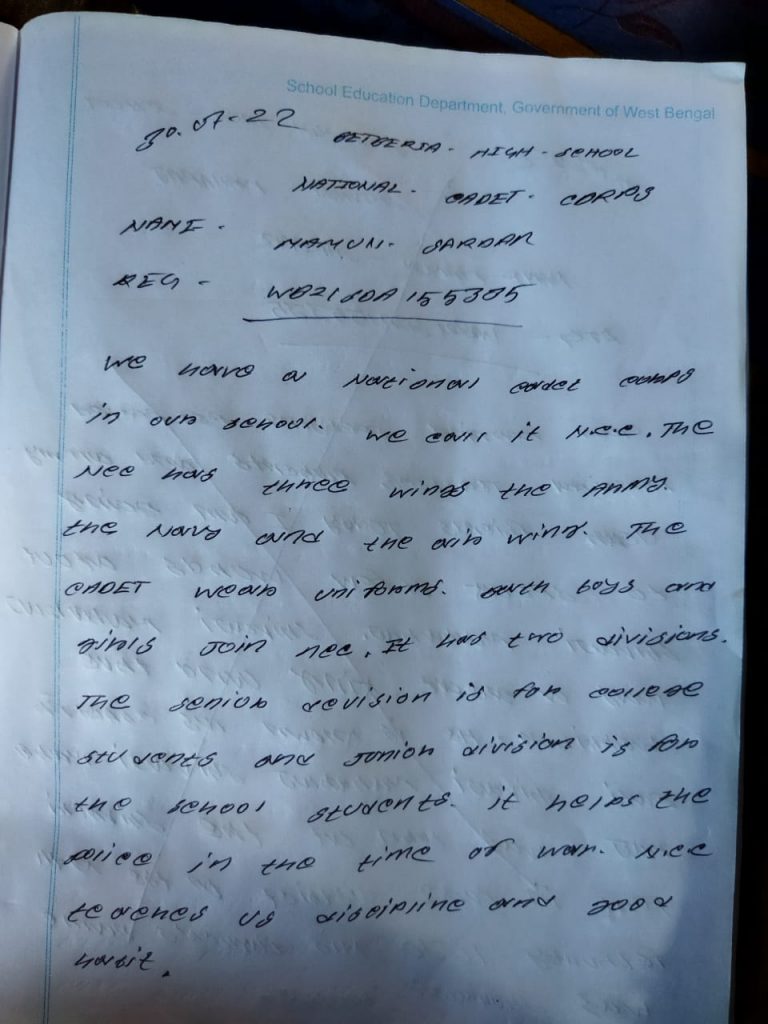 School Education Department, Government of West Bengal
30.07-22
BETBERIA - HIGH - SCHOOL
NATIONAL - CADET - CORPS
NAME - MAMUN - SARDAR
REG - WB21SDA155305
We have a National cadet corps
in our school. We call it N.C.C. The
NCC has three wings the Army.
the Navy and the air wing. The
CADET wear uniforms. Both boys and
girls Join ncc. It has two divisions.
The senior devision is for college
students and Junior division is for
the school students. it helps the
police in the time of war. N.C.C
teaches us discipline and good
habit.